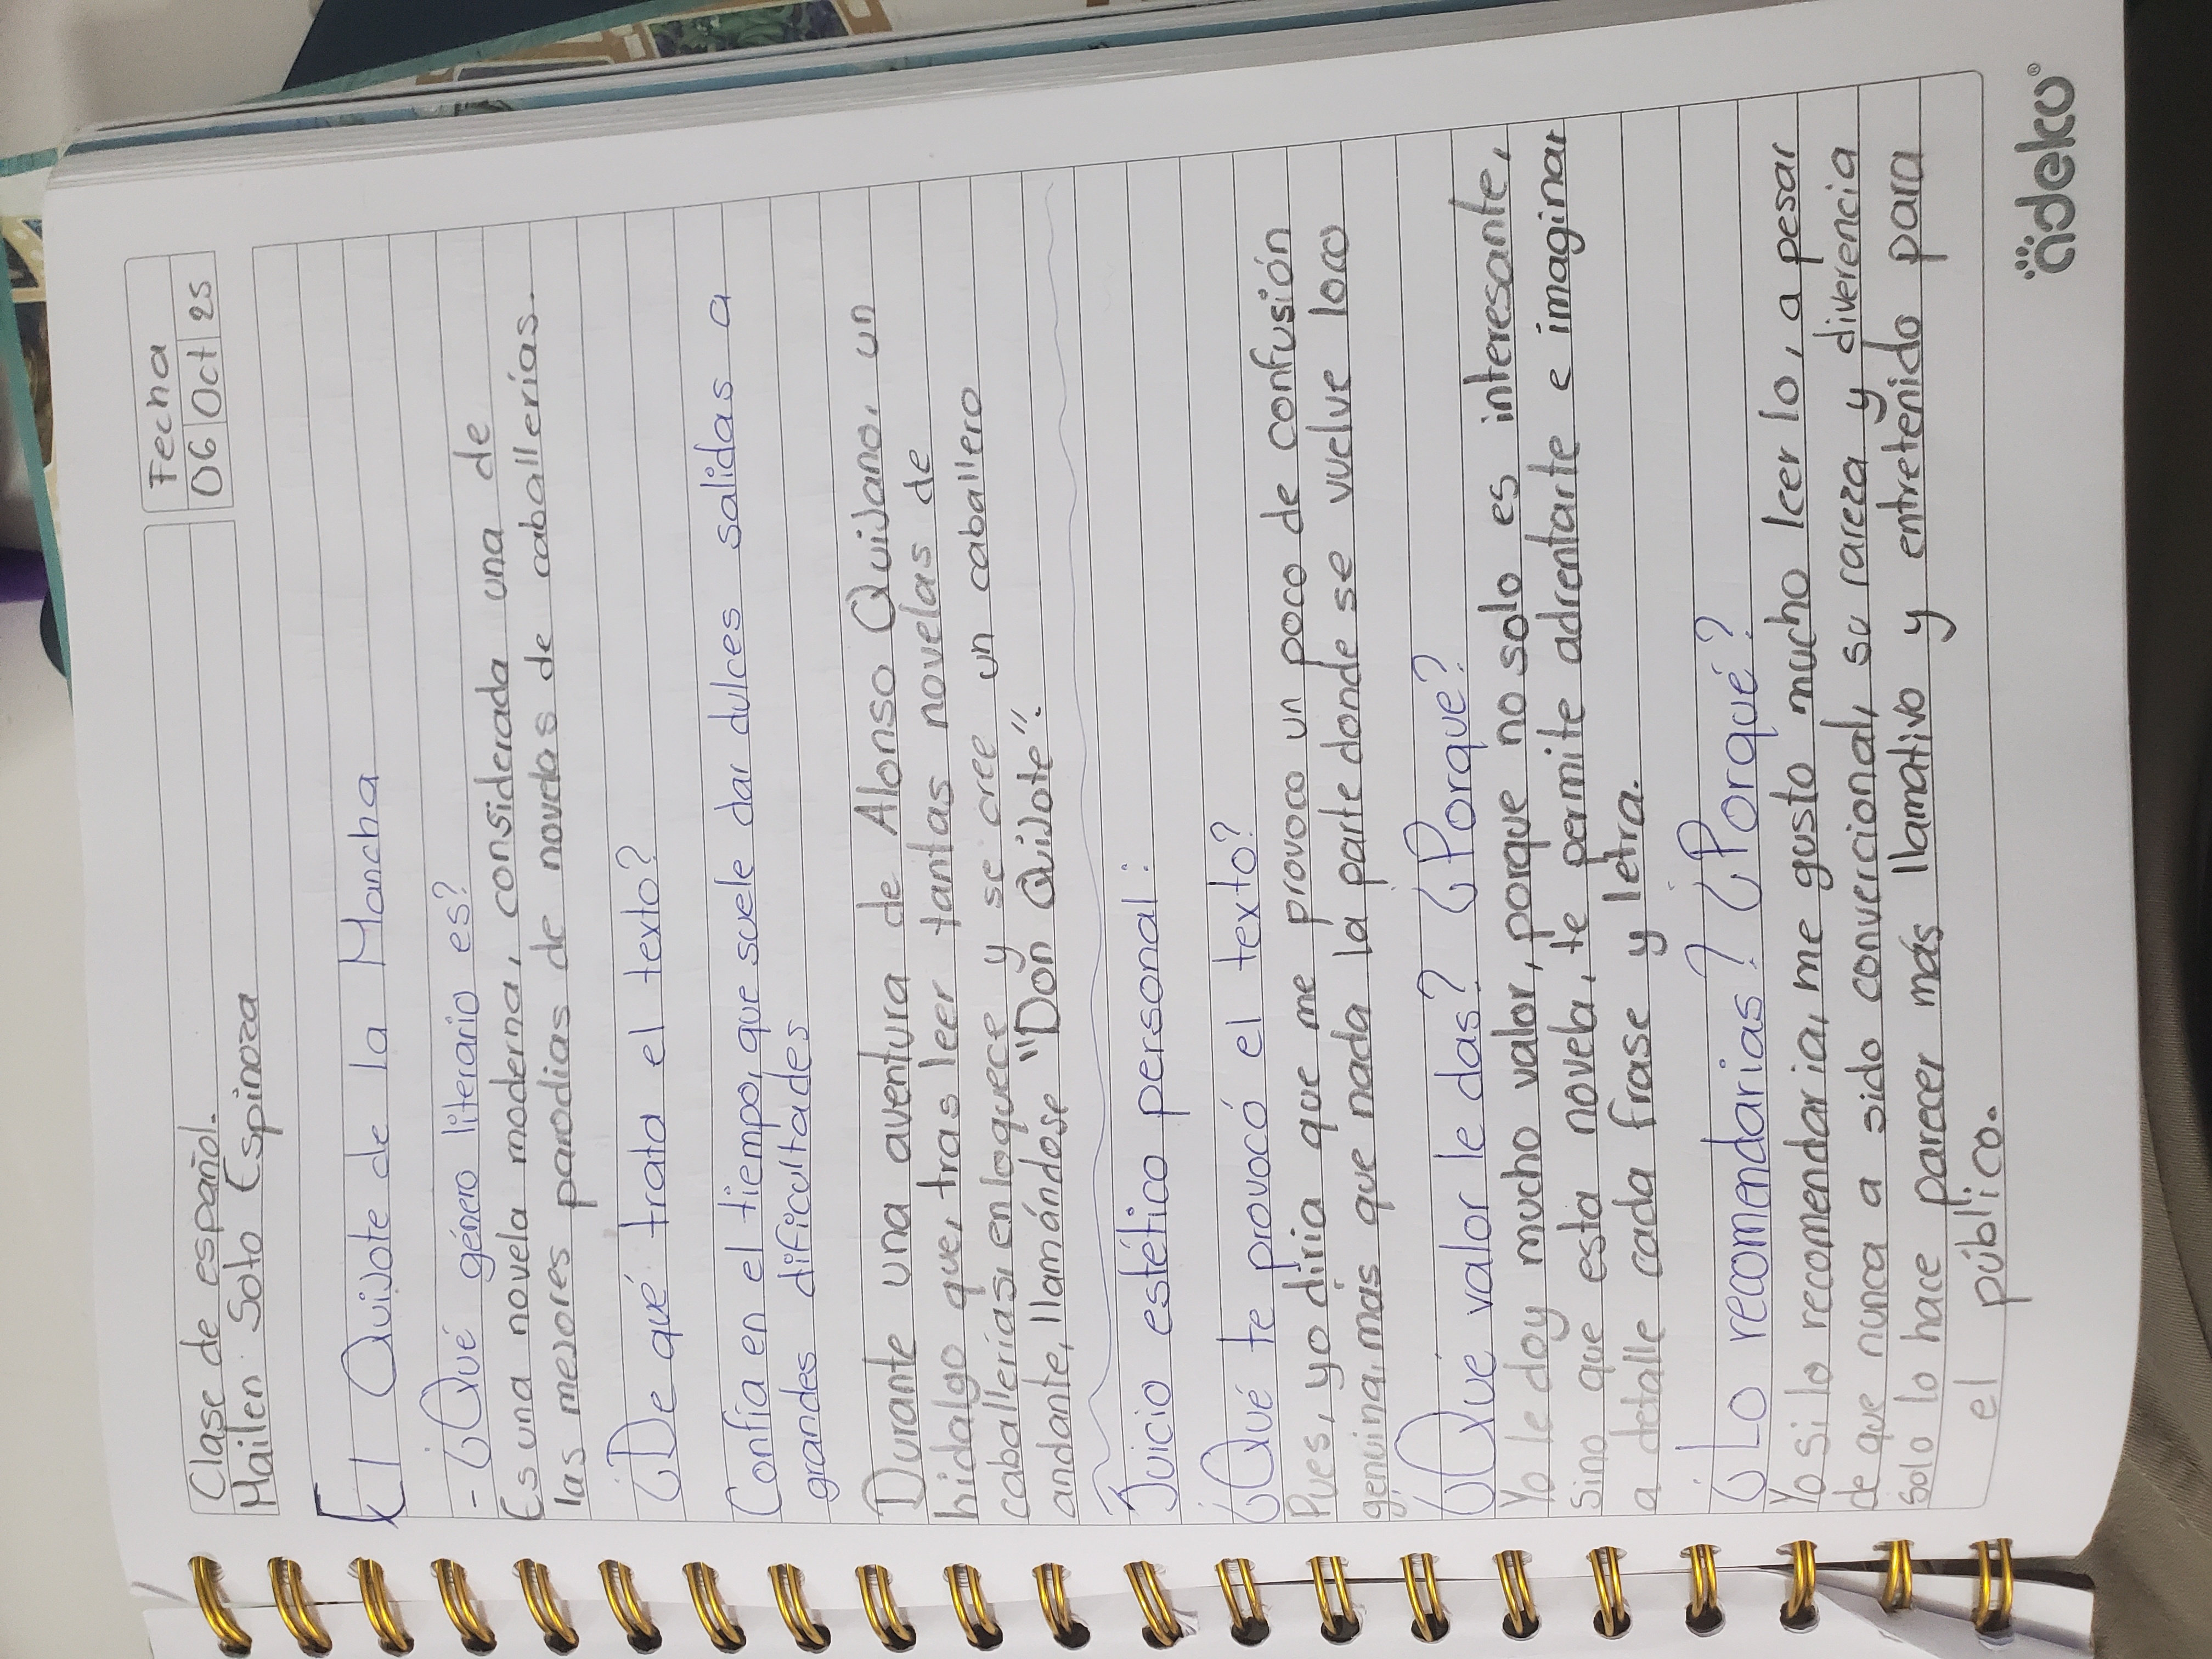 Fecha
06 Oct 25
Clase de español.
Mailen Soto Espinoza
El Quijote de la Mancha
- ¿Qué género literario es?
Es una novela moderna, considerada una de
las mejores parodias de novelas de caballerías.
¿De qué trata el texto?
Confía en el tiempo, que suele dar dulces salidas a
grandes dificultades
Durante una aventura de Alonso Quijano, un
hidalgo que, tras leer tantas novelas de
caballerías, enloquece y se cree un caballero
andante, llamándose "Don Quijote".
Juicio estético personal:
¿Qué te provocó el texto?
Pues, yo diria que me provoco un poco de confusión
genuina, mas que nada la parte donde se vuelve loco
¿Qué valor le das? ¿Porqué?
Yo le doy mucho valor, porque no solo es interesante,
sino que esta novela, te permite adrentarte e imaginar
a detalle cada frase y letra.
¿Lo recomendarias? ¿Porqué?
Yo si lo recomendaria, me gusto mucho leerlo, a pesar
de que nunca a sido convercional, su rareza y diverencia
solo lo hace parecer más llamativo y entretenido para
el público.
adeko®